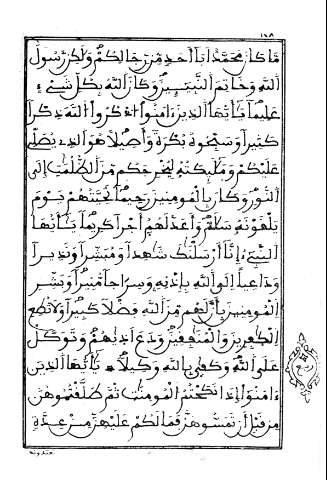 مَّا كَانَ مُحَمَّدٌ أَبَا أَحَدٍ مِّن رِّجَالِكُمْ وَلَٰكِن رَّسُولَ
اَللَّهِ وَخَاتِمَ اَلنَّبِيٓـِٕينَ وَكَانَ اَللَّهُ بِكُلِّ شَےْءٍ
عَلِيماً يَٰٓأَيُّهَا اَلذِينَ ءَامَنُوا اُ۟ذْكُرُوا اُ۟للَّهَ ذِكْراً
كَثِيراً وَسَبِّحُوهُ بُكْرَةً وَأَصِيلاً هُوَ اَلذِے يُصَلِّے
عَلَيْكُمْ وَمَلَٰٓئِكَتُهُ لِيُخْرِجَكُم مِّنَ اَلظُّلُمَٰتِ إِلَى
اَلنُّورِ وَكَانَ بِالْمُومِنِينَ رَحِيماً تَحِيَّتُهُمْ يَوْمَ
يَلْقَوْنَهُ سَلَٰمٌ وَأَعَدَّ لَهُمُ أَجْراً كَرِيماً يَٰٓأَيُّهَا
اَلنَّبِےٓءُ إِنَّا أَرْسَلْنَٰكَ شَٰهِداً وَمُبَشِّراً وَنَذِيراً
وَدَاعِياً إِلَى اَللَّهِ بِإِذْنِهِ وَسِرَاجاً مُّنِيراً وَبَشِّرِ
اِلْمُومِنِينَ بِأَنَّ لَهُم مِّنَ اَللَّهِ فَضْلاً كَبِيراً وَلَا تُطِعِ
اِلْكَٰفِرِينَ وَالْمُنَٰفِقِينَ وَدَعَ اَذَيٰهُمْ وَتَوَكَّلْ
عَلَى اَللَّهِ وَكَفَىٰ بِاللَّهِ وَكِيلاً يَٰٓأَيُّهَا اَلذِينَ
ءَامَنُوٓا إِذَا نَكَحْتُمُ اُلْمُومِنَٰتِ ثُمَّ طَلَّقْتُمُوهُنَّ
مِن قَبْلِ أَن تَمَسُّوهُنَّ فَمَا لَكُمْ عَلَيْهِنَّ مِنْ عِدَّةٍ